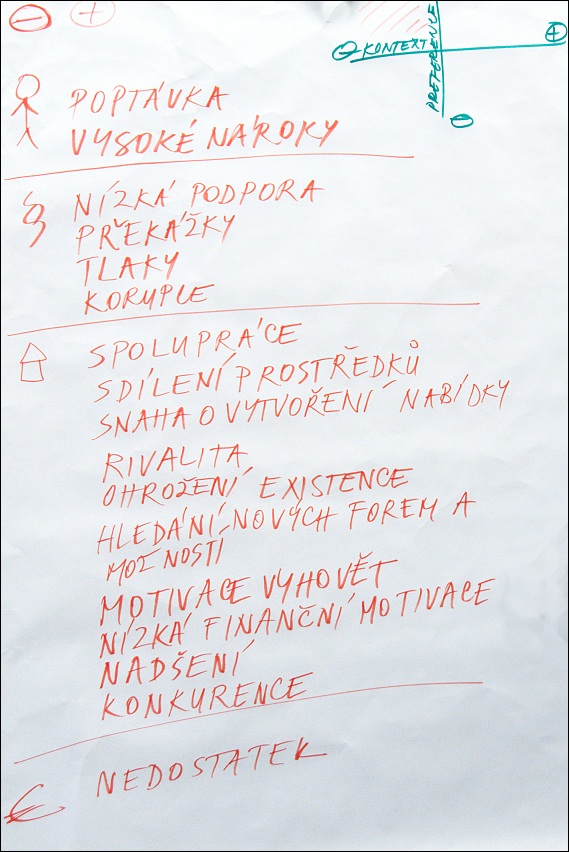 KONTEXT
PREFERENCE
POPTÁVKA
VYSOKÉ NÁROKY
§ NÍZKÁ PODPORA
PŘEKÁŽKY
TLAKY
KORUPLE
SPOLUPRÁCE
SDÍLENÍ PROSTŘEDKŮ
SNAHA O VYTVOŘENÍ NABÍDKY
RIVALITA
OHROŽENÍ EXISTENCE
HLEDÁNÍ NOVÝCH FOREM A
MOŽNOSTÍ
MOTIVACE VYHOVĚT
NÍZKÁ FINANČNÍ MOTIVACE
NADŠENÍ
KONKURENCE
€ NEDOSTATEK